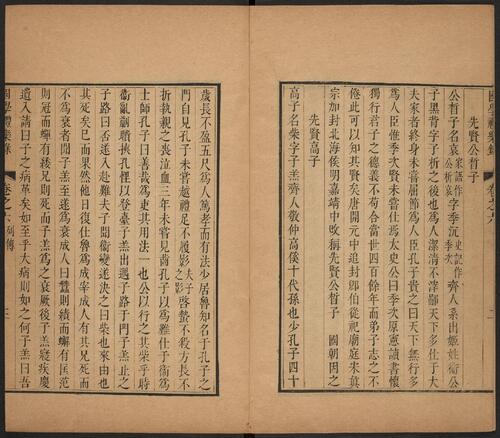 先賢公晳子
公晳子名哀家語作公析哀字季沉史記作季次齊人系出姬姓衞公
子黑背字子折之後也爲人潔清不滓鄙天下多仕于大
夫家者終身未嘗屈節爲人臣孔子貴之曰天下無行多
爲人臣惟季次賢未嘗仕焉太史公曰季次原憲讀書懷
獨行君子之德義不苟合當世四百餘年而弟子志之不
倦此可以知其賢矣唐開元中追封郳伯從祀廟庭宋眞
宗加封北海侯明嘉靖中改稱先賢公晳子 國朝因之
先賢高子
高子名柴字子羔齊人敬仲高傒十代孫也少孔子四十
歲長不盈五尺爲人篤孝而有法少居魯知名于孔子之
門自見孔子未嘗越禮足不履影夫子之影啓蟄不殺方長不
折執親之喪泣血三年未嘗見齒孔子以爲雅仕于衞爲
士師孔子曰善哉爲吏其用法一也公以行之其柴乎時
衞亂蒯聵挾孔悝以登臺子羔出遇子路于門子羔止之
子路曰否遂入赴難夫子聞衞變遂決之曰柴也來由也
其死矣已而果然他日復仕魯爲成宰成人有其兄死而
不爲衰者聞子羔至遂爲衰成人曰蠶則績而蟹有匡范
則冠而蟬有緌兄則死而子羔爲之衰厥後子羔寢疾慶
遺入請曰子之病革矣如至乎大病則如之何子羔曰吾
國學禮樂錄 卷之六 列傳 三